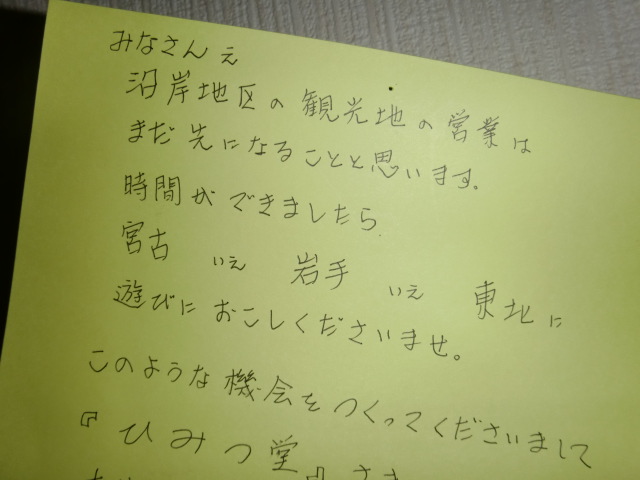 みなさんえ
沿岸地区の観光地の営業は
まだ先になることと思います。
時間ができましたら
宮古 いえ 岩手 いえ 東北に
遊びにおこしくださいませ。
このような機会をつくってくださいまして
『ひみつ堂』さま